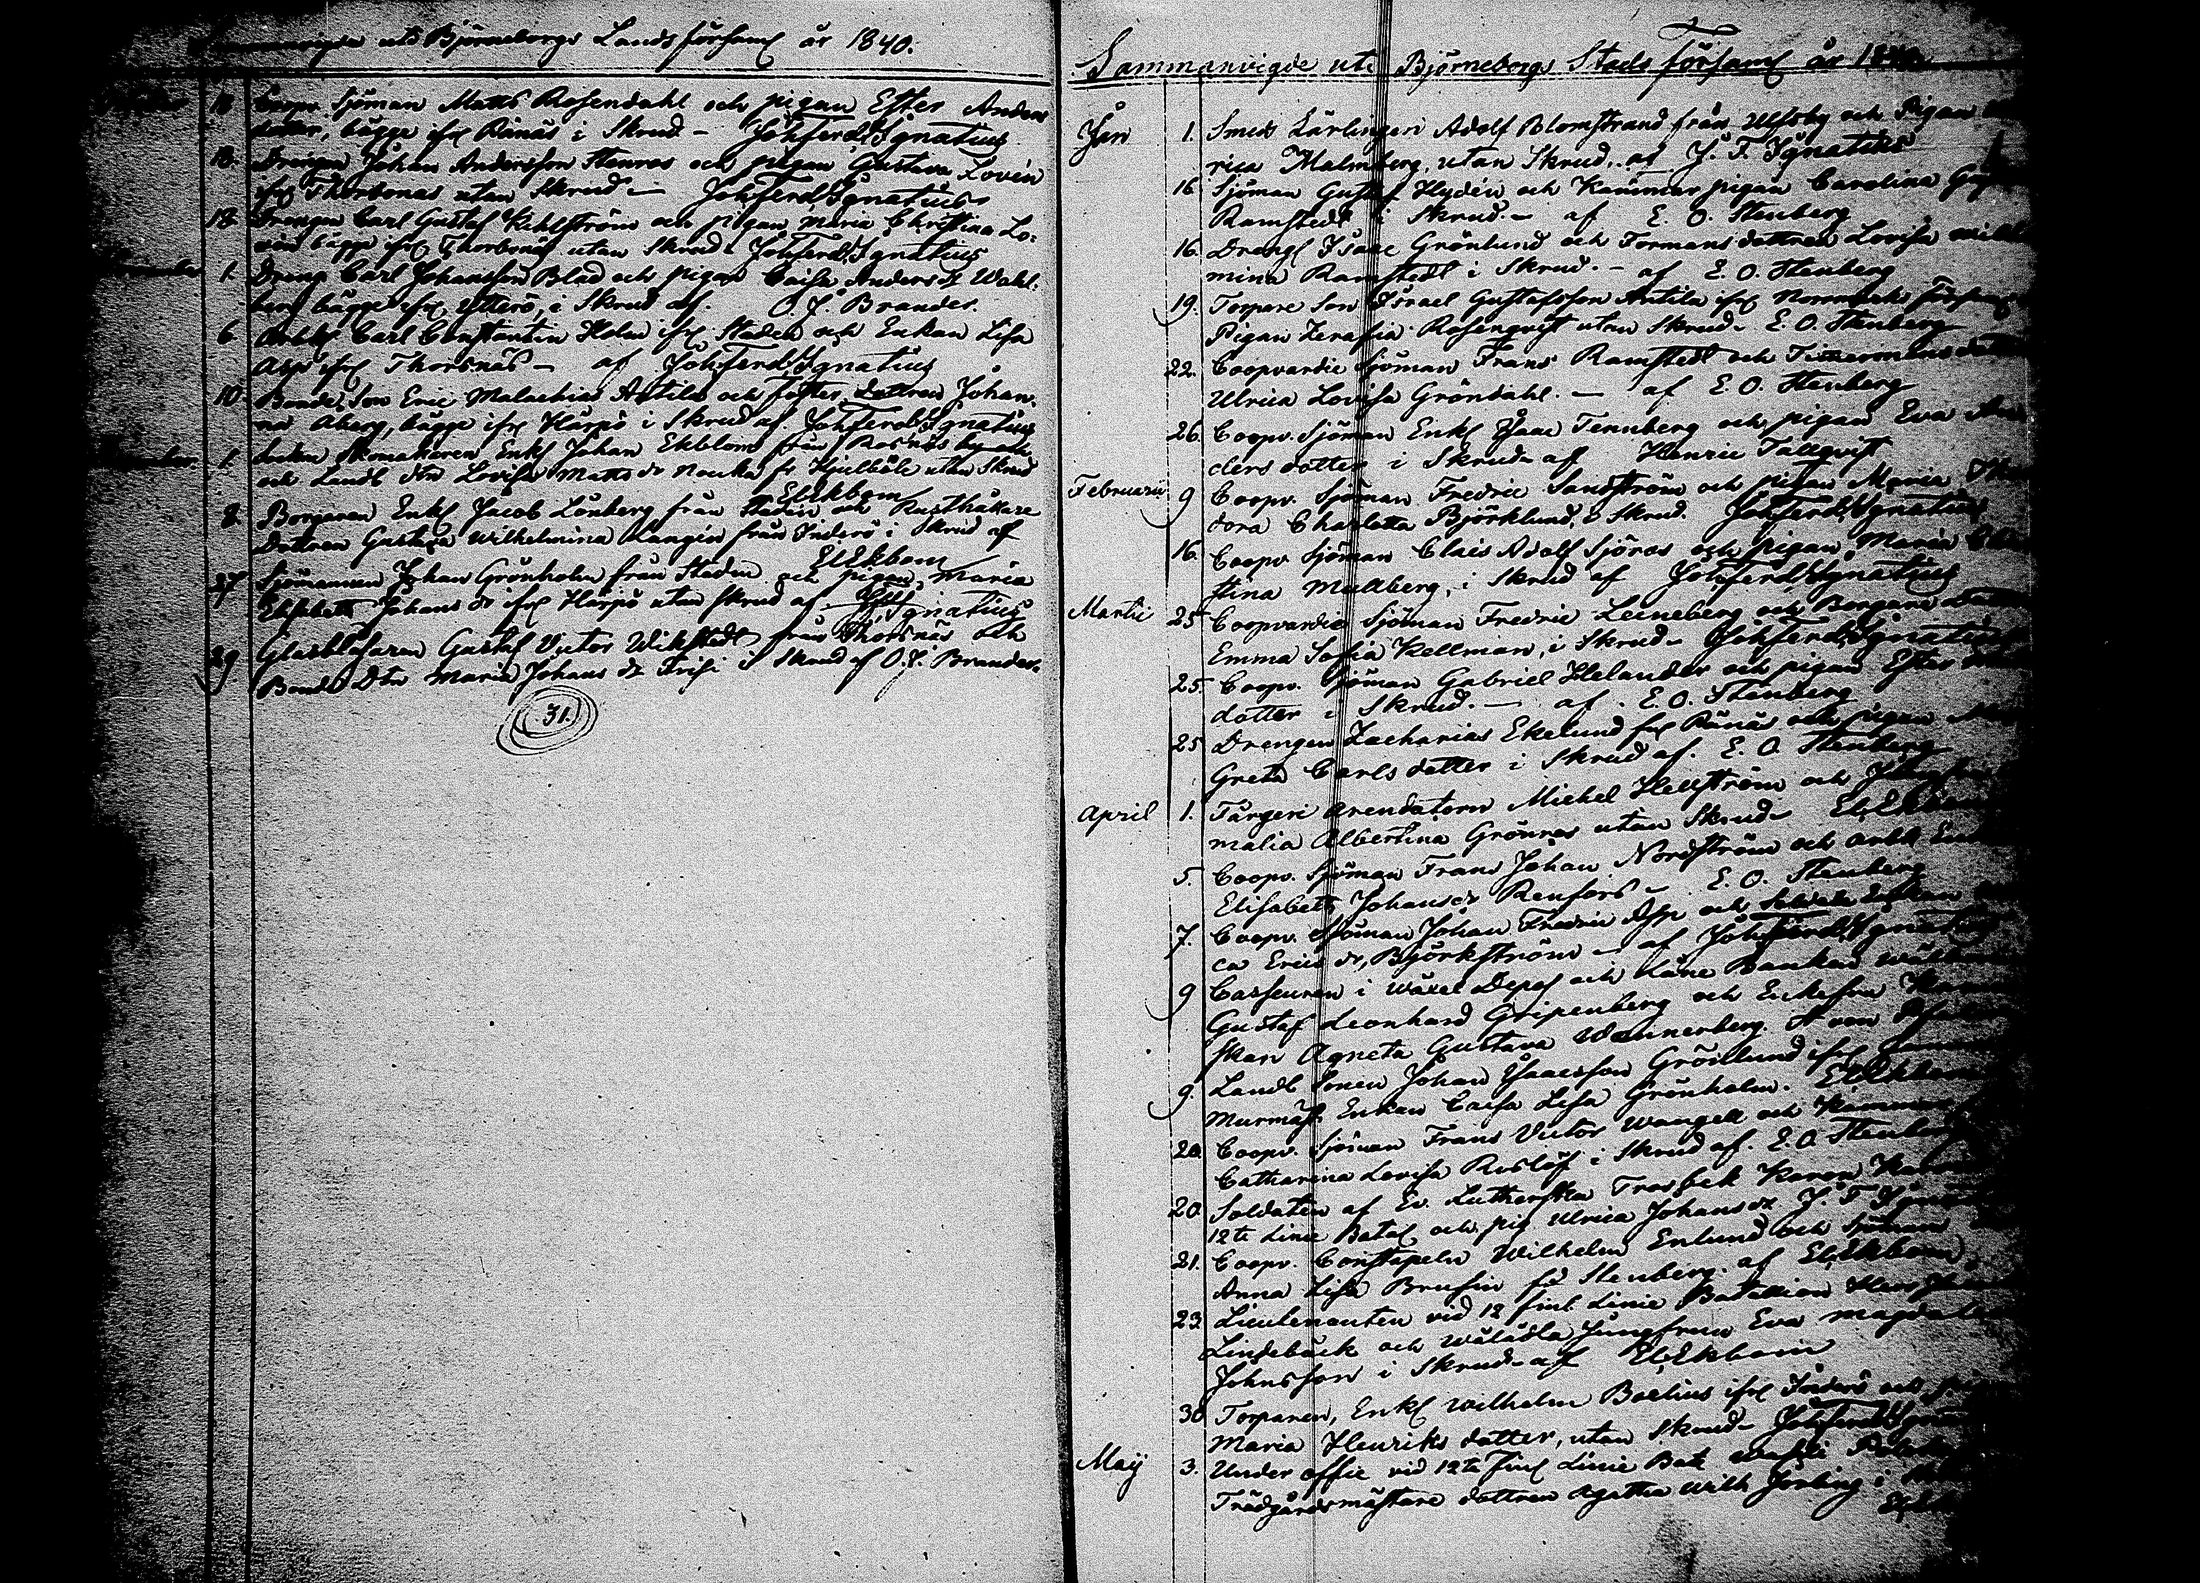 Sammanvigde uti Björneborgs Landsförsaml år 1840.
October 18. Coopv. Sjöman Matts Rosendahl och pigan Ester Anders
dotter, bägge ifr Ränäs i Skrud – Joh Ferd Ignatius
18. Drengen Johan Andersson Stenroos och pigan Gustava Lovén
ifr Thorbonäs utan Skrud – Joh Ferd Ignatius
18. Drengen Carl Gustaf Kihlström och pigan Maria Christina Lo-
vén bägge ifr Thorbonäs utan Skrud Joh Ferd Ignatius
November 1. Dreng Carl Johansson Blad och pigan Caisa Anders dr Wahl-
berg bägge ifr Ytterö, i Skrud af O. J. Brander.
6. Arbk Carl Constantin Holm ifr Staden och Enkan Lisa
Asp ifr Thorsnäs – af Joh Ferd Ignatius
10. Bonde Son Eric Malachias Antila och Foster dottren Johan-
na Åberg, bägge ifr Härpö i Skrud af Joh Ferd Ignatius
December 1. Enkl Johan Ekblom från Rosnäs
och Landb dtn Lovisa Matts dr Nouka fr Kjulböle utan Skrud
El Ekbom
8. Borgaren Enkl Jacob Lönberg från Staden och Rusthållare
Dottren Gustava Wilhelmina Langén från Inderö i Skrud af
El Ekbom
27 Sjömannen Johan Grönholm från Staden och pigan Maria
Elisabeth Johans dr ifr Härpö utan Skrud af Ignatius
29 Glasblåsaren Gustaf Victor Wikstedt från Thorsnäs och
Bonde Dtn Maria Johans dr Frisi i Skrud af O. J. Brander.
31.
Sammanvigde uti Björneborgs Stads Församl år 1840.
Jan 1. Smeds Lärlingen Adolf Blomstrand från Ulfsby och Pigan
rica Malmberg, utan Skrud, af J. F. Ignatius
16 Sjöman Gustaf Hydén och Kammar pigan Carolina
Ramstedt i Skrud. – af E. O. Stenberg
16. Drengl Isaac Grönlund och Formansdottren Lovisa
mina Ramstedt i Skrud. – af E. O. Stenberg
19. Torpare Son Israel Gustafsson Antila ifr Norrmark församl
Pigan Serafia Rosenqvist utan Skrud. E. O. Stenberg
22. Coopvardie Sjöman Frans Ramstedt och Timmermans
Ulrica Lovisa Gröndahl. – af E. O. Stenberg
26. Coopv. Sjöman Enkl Isaac Tennberg och pigan Eva An
ders dotter i Skrud af Henric Tallqvist
Februarii 9 Coopv. Sjöman Fredric Sandström och pigan Maria Theo
dora Charlotta Björklund, i Skrud. Joh Ferd Ignatius
16. Coopv Sjöman Claës Adolf Sjöroos och pigan Maria
stina Mullberg, i Skrud af Joh Ferd Ignatius
Martii 25 Coopvardie Sjöman Fredric Leineberg och Borgare
Emma Sofia Kellman, i Skrud – Joh Ferd Ignatius
25. Coopv. Sjöman Gabriel Helander och pigan Ester
dotter i Skrud. – af. E. O. Stenberg
25 Drengen Zacharias Ekelund fr Ränäs och pigan
Greta Carls dotter i Skrud af. E. O. Stenberg
April 1. Färgeri arendatorn Michel Hellström och Jungfru
malia Albertina Grönroos utan Skrud – El. Ekbom
5. Coopv. Sjöman Frans Johan Nordström och arbk
Elisabeth Johans dr Renfors – E. O. Stenberg
7. Coopv. Sjöman Johan Fredric Asp och Soldats Enkan
ca Erics dr, Björkström – af Joh Ferd Ignatius
9 Casseuren i Wäxel Depos och Låne Banken
Gustaf Leonhard Gripenberg och Enkefru
skan Agneta Gustava Wannerberg.
9. Landb Sonen Johan Isaacsson Grönlund ifr
Murmäst Enkan Caisa Lisa Grönholm. El Ekbom
20. Coopv. Sjöman Frans Victor Wangell och Kammar
Catharina Lovisa Roslöf i Skrud af. E. O. Stenberg
20. Soldaten af Ev. Lutherska Trosbek
12te Linie Batal och pig Ulrica Johans dr J. F. Ignatius
21. Coopv. Constapeln Wilhelm Enlund och Sjöman
Anna Lisa Brusin fd Stenberg. af El Ekbom.
23. Lieutenanten vid 12 finl Linie Bataillon Herr
Lindebäck och wälädla Jungfrun Eva Magdalena
Johnsson i Skrud af El Ekbom
30 Torparen, Enkl Wilhelm Boelius ifr Inderö och
Maria Henriks dotter, utan Skrud – Joh Ferd Ignatius
Maij 3. Under offic vid 12te Finl Linie Bat
Trädgårdsmästare dottren Agatha Wilh Jerling i